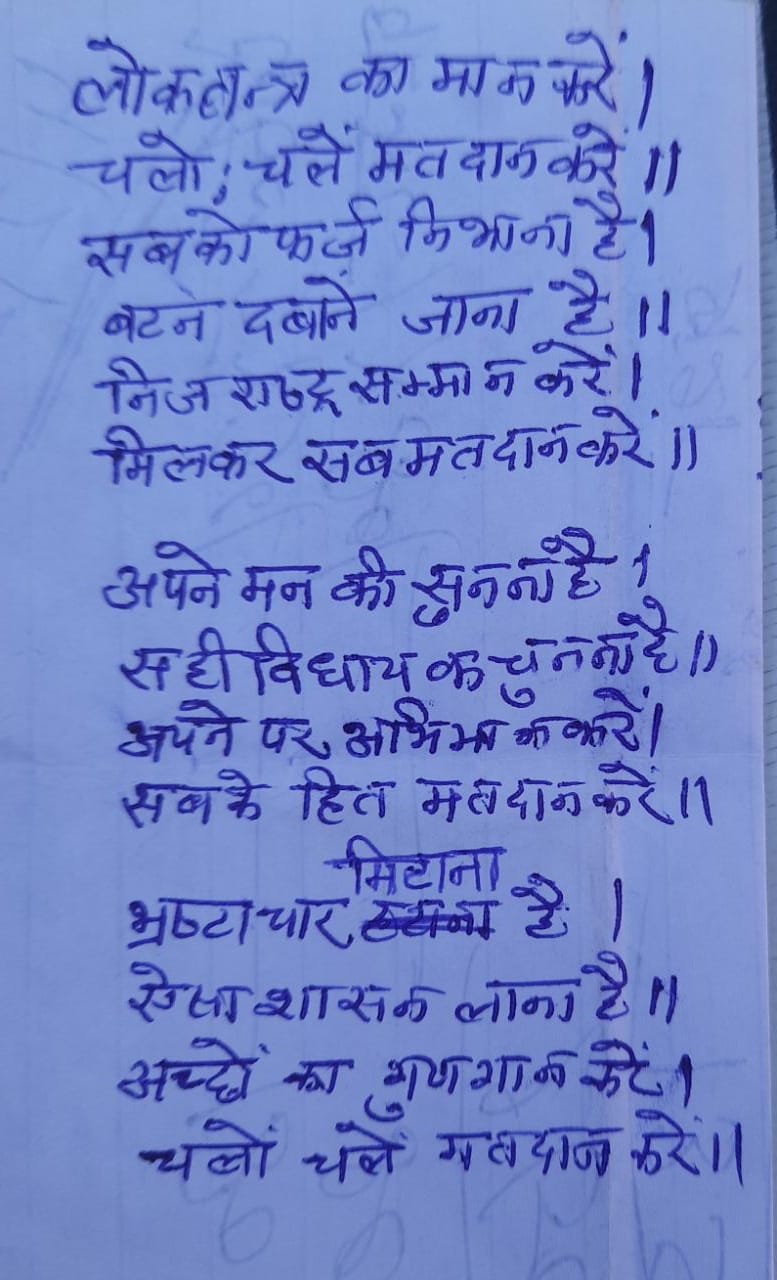 लोकतन्त्र का मान करें।
चलो, चलें मतदान करें॥
सबको फर्ज निभाना है।
बटन दबाने जाना है॥
निज राष्ट्र सम्मान करें।
मिलकर सब मतदान करें॥
अपने मन की सुनना है।
सही विधायक चुनना है॥
अपने पर अभिमान करें।
सबके हित मतदान करें॥
मिटाना
भ्रष्टाचार है।
ऐसा शासन लाना है॥
अच्छों का गुणगान करें।
चलों चलें मतदान करें॥